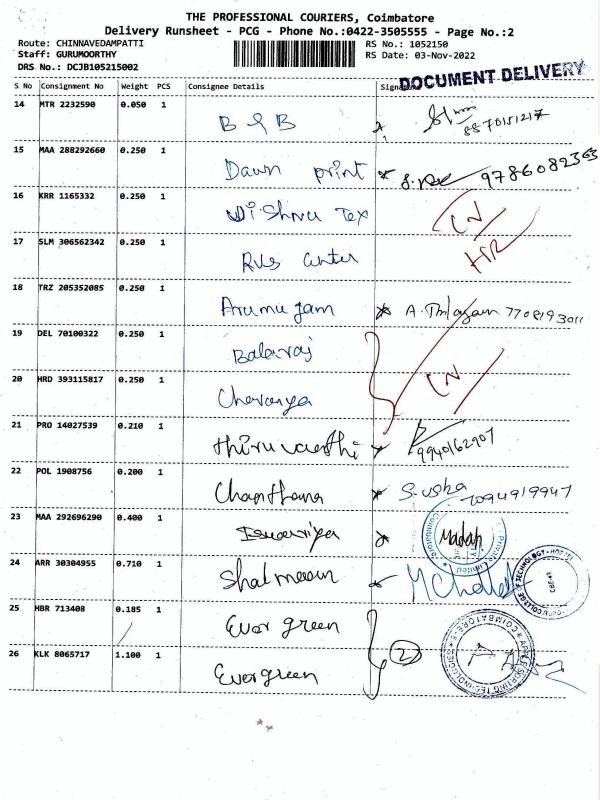 THE PROFESSIONAL COURIERS, Coimbatore
Delivery Runsheet - PCG - Phone No.:0422-3505555 - Page No.:2
Route: CHINNAVEDAMPATTI
RS No.: 1052150
Staff: GURUMOORTHY
RS Date: 03-Nov-2022
DRS No.: DCJB105215002
DOCUMENT DELIVERY
S No Consignment No Weight PCS Consignee Details
14 MTR 2232590 0.050 1 B & B 8870151217
15 MAA 288292660 0.250 1 Dawn print 9786082363
16 KRR 1165332 0.250 1 Vishnu Tex
17 SLM 306562342 0.250 1 RVS center
18 TRZ 205352085 0.250 1 Arumugam A. Thiagan 7708193011
19 DEL 70100322 0.250 1 Balaraj
20 HRD 393115817 0.250 1 Charanya
21 PRO 14027539 0.210 1 9940162907
22 POL 1908756 0.200 1 S. usha 7094919947
23 MAA 292696290 0.400 1
24 ARR 30304955 0.710 1
25 HBR 713408 0.185 1 Ever green
26 KLK 8065717 1.100 1 Evergreen
2